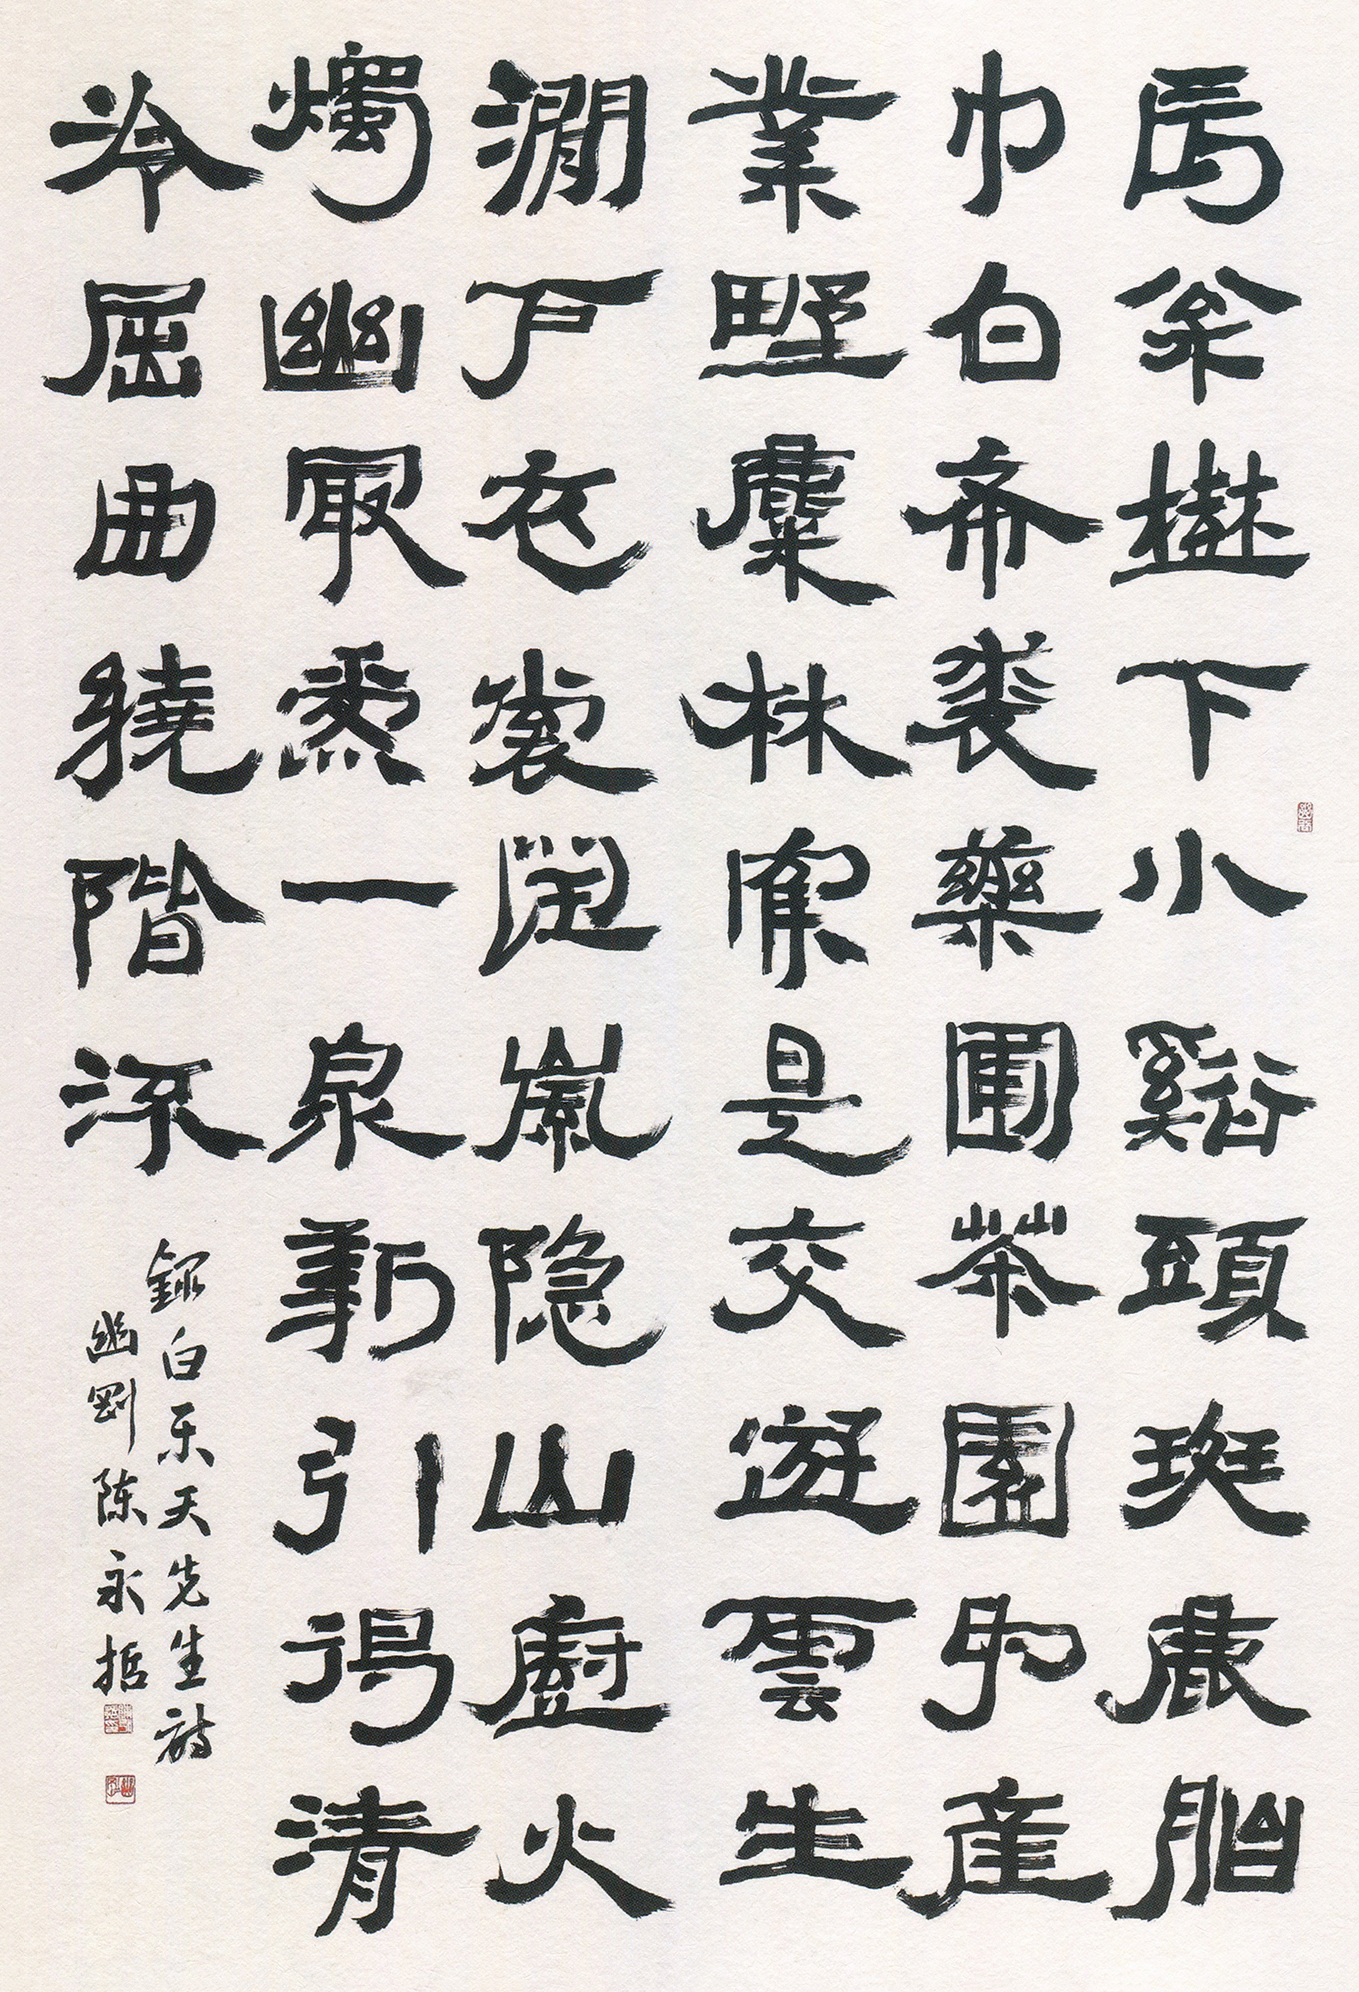 長松樹下小谿頭斑鹿胎
巾白布裘藥圃茶園為產
業野麋林鶴是交遊雲生
澗戶衣裳潤嵐隐山廚火
燭幽最愛一泉新引得清
泠屈曲繞階流
録白乐天先生詩
幽剛陈永哲